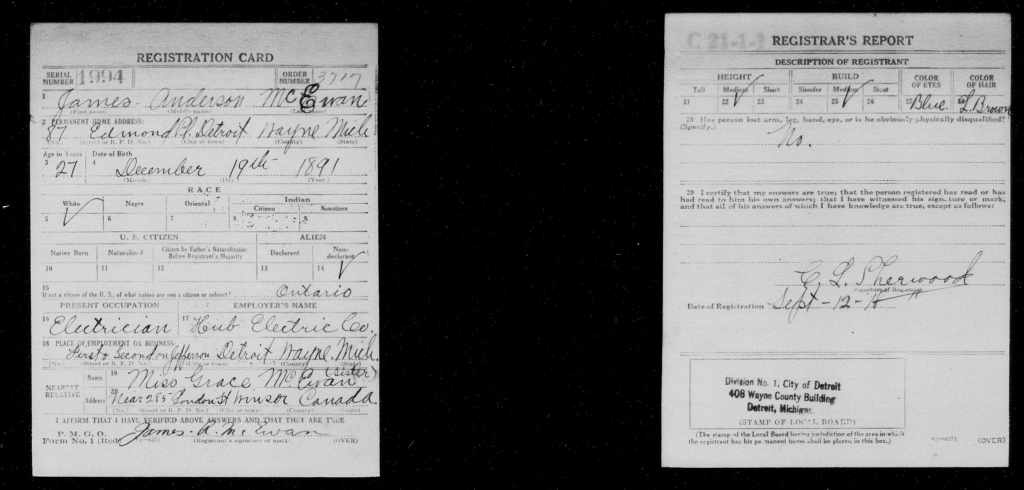 REGISTRATION CARD
SERIAL NUMBER 1994 ORDER NUMBER 3717
1 James Anderson McEwan
(First name) (Middle name)
2 PERMANENT HOME ADDRESS:
87 Edmond Pl. Detroit Wayne Mich
(No.) (Street or R. F. D. No.) (City or town) (County) (State)
Age in Years Date of Birth
3 27 4 December 19th 1891
(Month.) (Day.) (Year.)
RACE
White Negro Oriental Indian
Citizen Noncitizen
5 ✓ 6 7 8 9
U. S. CITIZEN ALIEN
Native Born Naturalized Citizen by Father's Naturalization Before Registrant's Majority Declarant Non-declarant
10 11 12 13 14 ✓
15
If not a citizen of the U. S., of what nation are you a citizen or subject? Ontario
PRESENT OCCUPATION EMPLOYER'S NAME
16 Electrician 17 Hub Electric Co.
18 PLACE OF EMPLOYMENT OR BUSINESS:
First & Second on Jefferson Detroit Wayne Mich.
(No.) (Street or R. F. D. No.) (City or town) (County) (State)
NEAREST RELATIVE Name 19 Miss Grace McEwan (Sister)
Address 20 Near 285 London St Winsor Canada
(No.) (Street or R. F. D. No.) (City or town) (County) (State)
I AFFIRM THAT I HAVE VERIFIED ABOVE ANSWERS AND THAT THEY ARE TRUE
P. M. G. O.
Form No. 1 (Red) James A. McEwan
(Registrant's signature or mark) (OVER)
C 21-1-
REGISTRAR'S REPORT
DESCRIPTION OF REGISTRANT
HEIGHT BUILD COLOR OF EYES COLOR OF HAIR
Tall Medium Short Slender Medium Stout
21 22 ✓ 23 24 25 ✓ 26 27 Blue 28 L. Brown
29 Has person lost arm, leg, hand, eye, or is he obviously physically disqualified?
(Specify.) No.
30 I certify that my answers are true; that the person registered has read or has
had read to him his own answers; that I have witnessed his signature or mark,
and that all of his answers of which I have knowledge are true, except as follows:
E. L. Sherwood
(Signature of Registrar)
Date of Registration Sept-12-18
Division No. 1, City of Detroit
408 Wayne County Building
Detroit, Michigan
(STAMP OF LOCAL BOARD)
(The stamp of the Local Board having jurisdiction of the area in which
the registrant has his permanent home shall be placed in this box.)
(OVER)